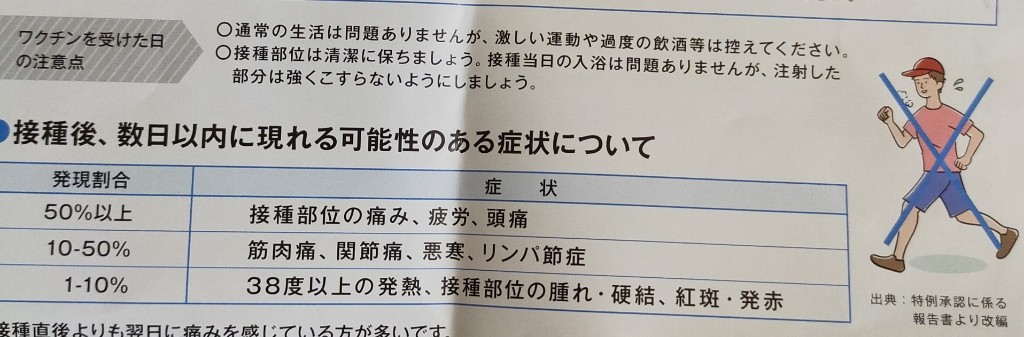 ワクチンを受けた日
の注意点
○通常の生活は問題ありませんが、激しい運動や過度の飲酒等は控えてください。
○接種部位は清潔に保ちましょう。接種当日の入浴は問題ありませんが、注射した
部分は強くこすらないようにしましょう。
●接種後、数日以内に現れる可能性のある症状について
発現割合 症 状
50%以上 接種部位の痛み、疲労、頭痛
10-50% 筋肉痛、関節痛、悪寒、リンパ節症
1-10% 38度以上の発熱、接種部位の腫れ・硬結、紅斑・発赤
接種直後よりも翌日に痛みを感じている方が多いです。
出典：特例承認に係る
報告書より改編